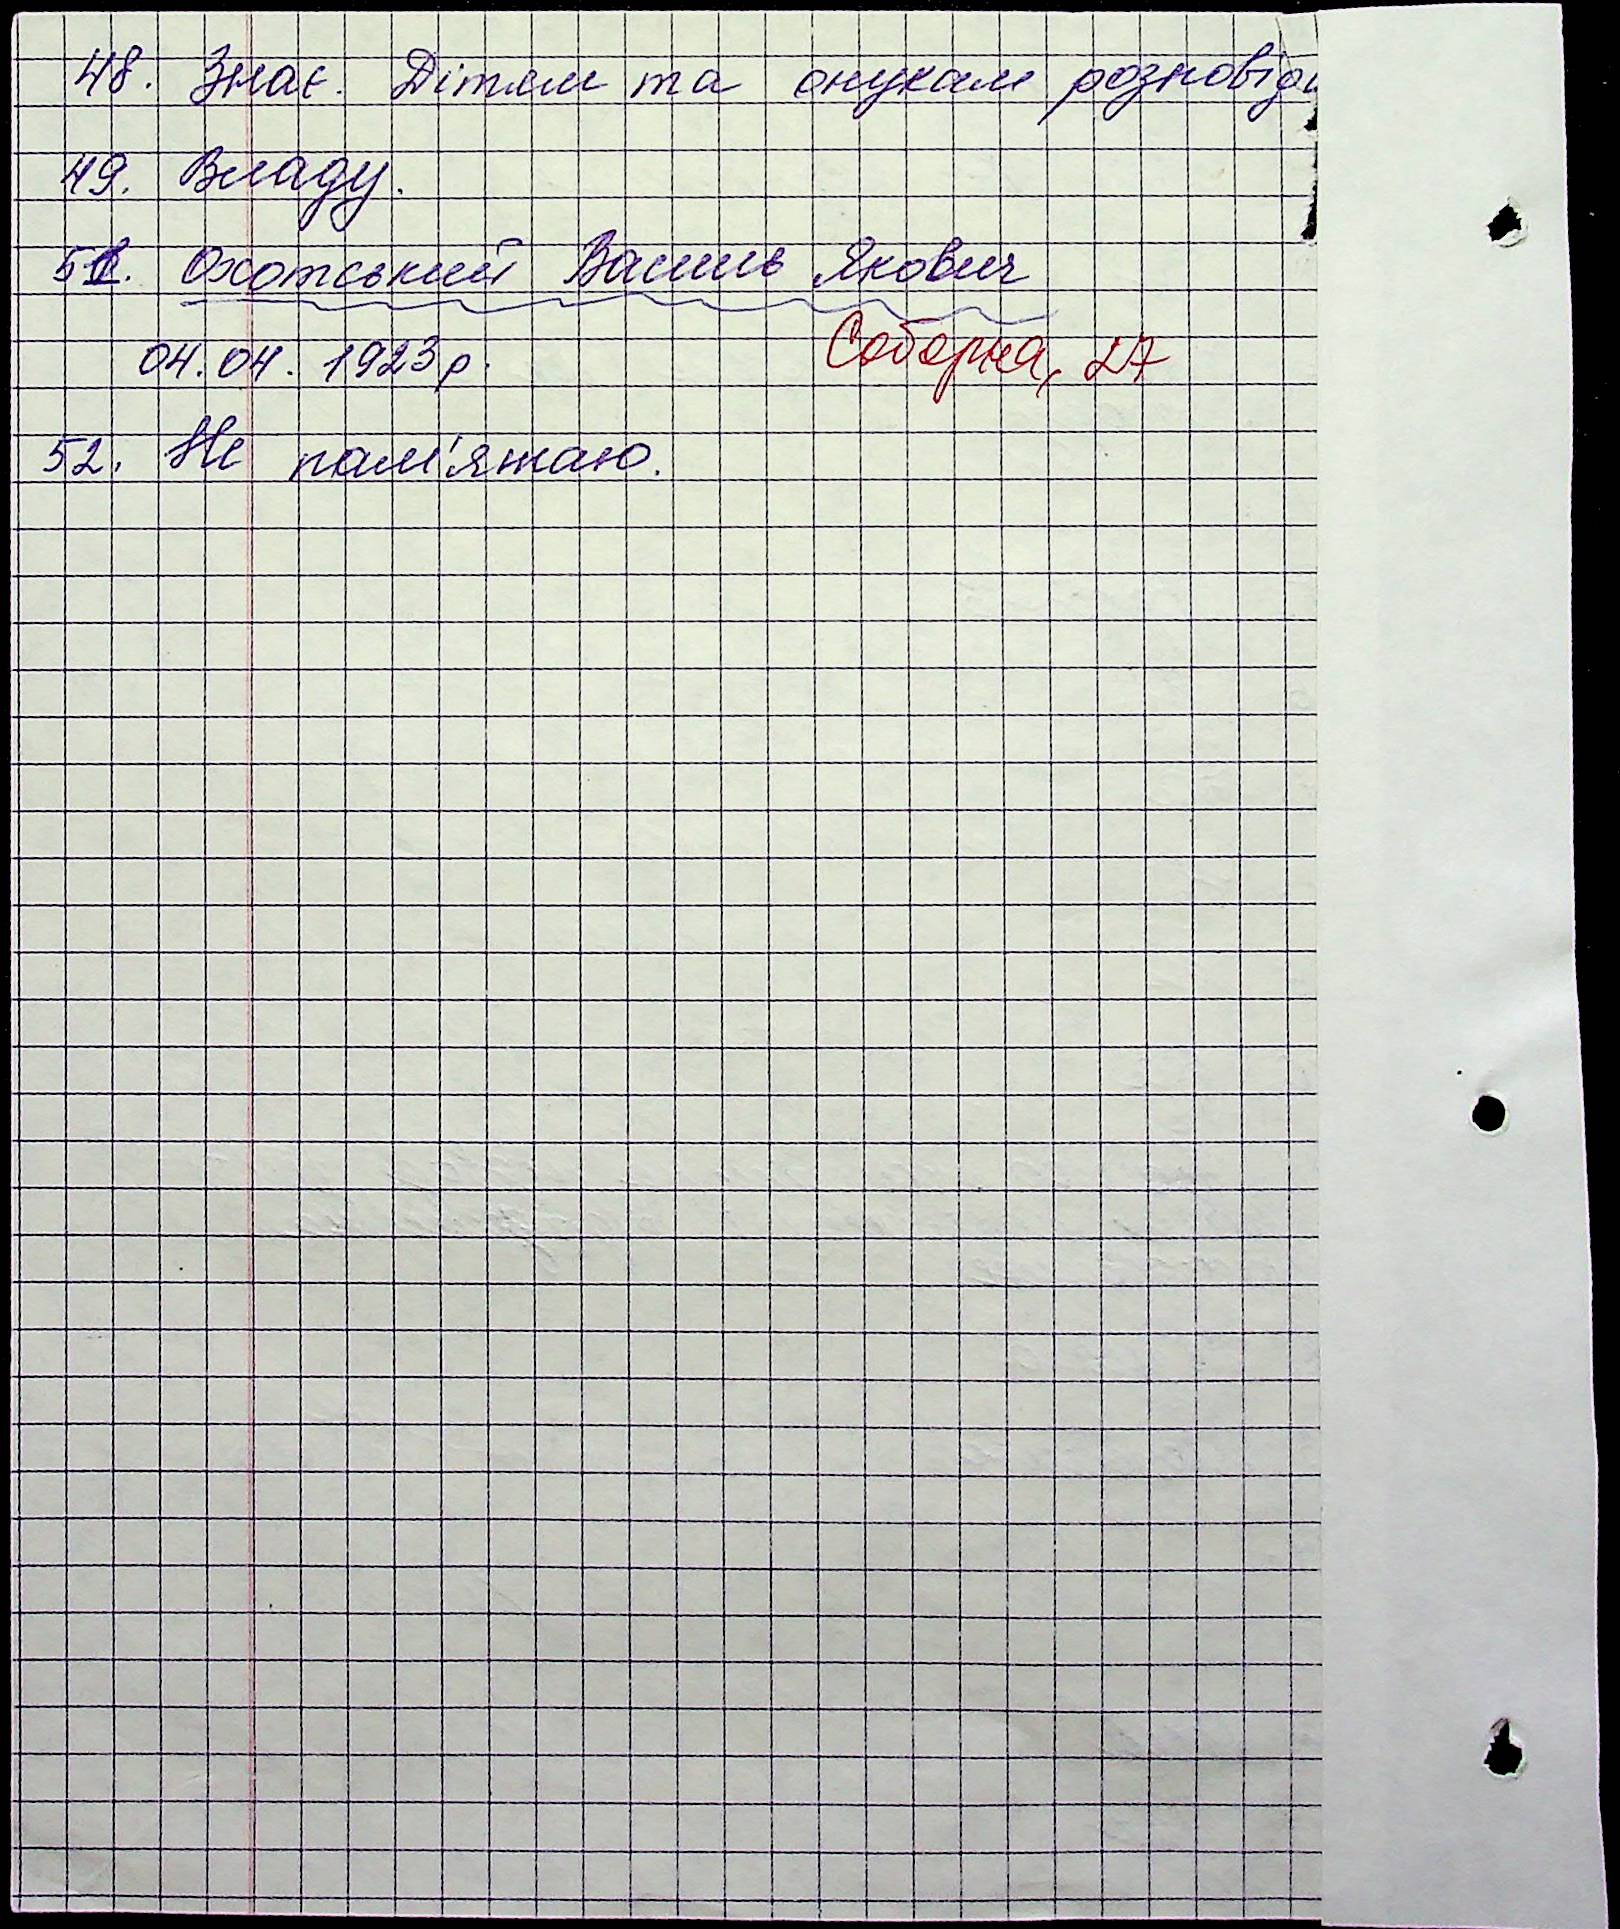 48. Знає. Дітям та онукам розповіди
49. Владу.
51. Охотський Василь Якович
04.04.1923 р. Соборна, 27
52. Не пам'ятаю.